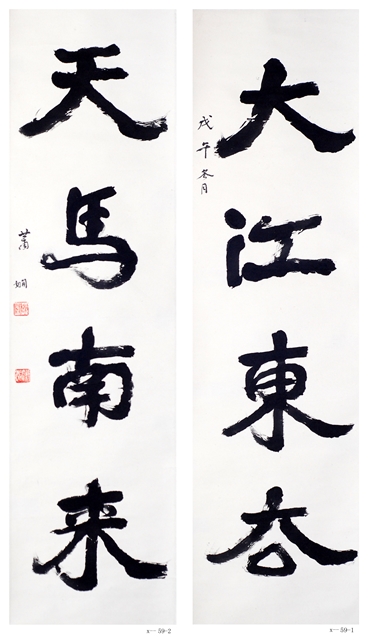 大江東去
戊午冬月
天馬南来
蕭嫻
x—59-2
x—59-1